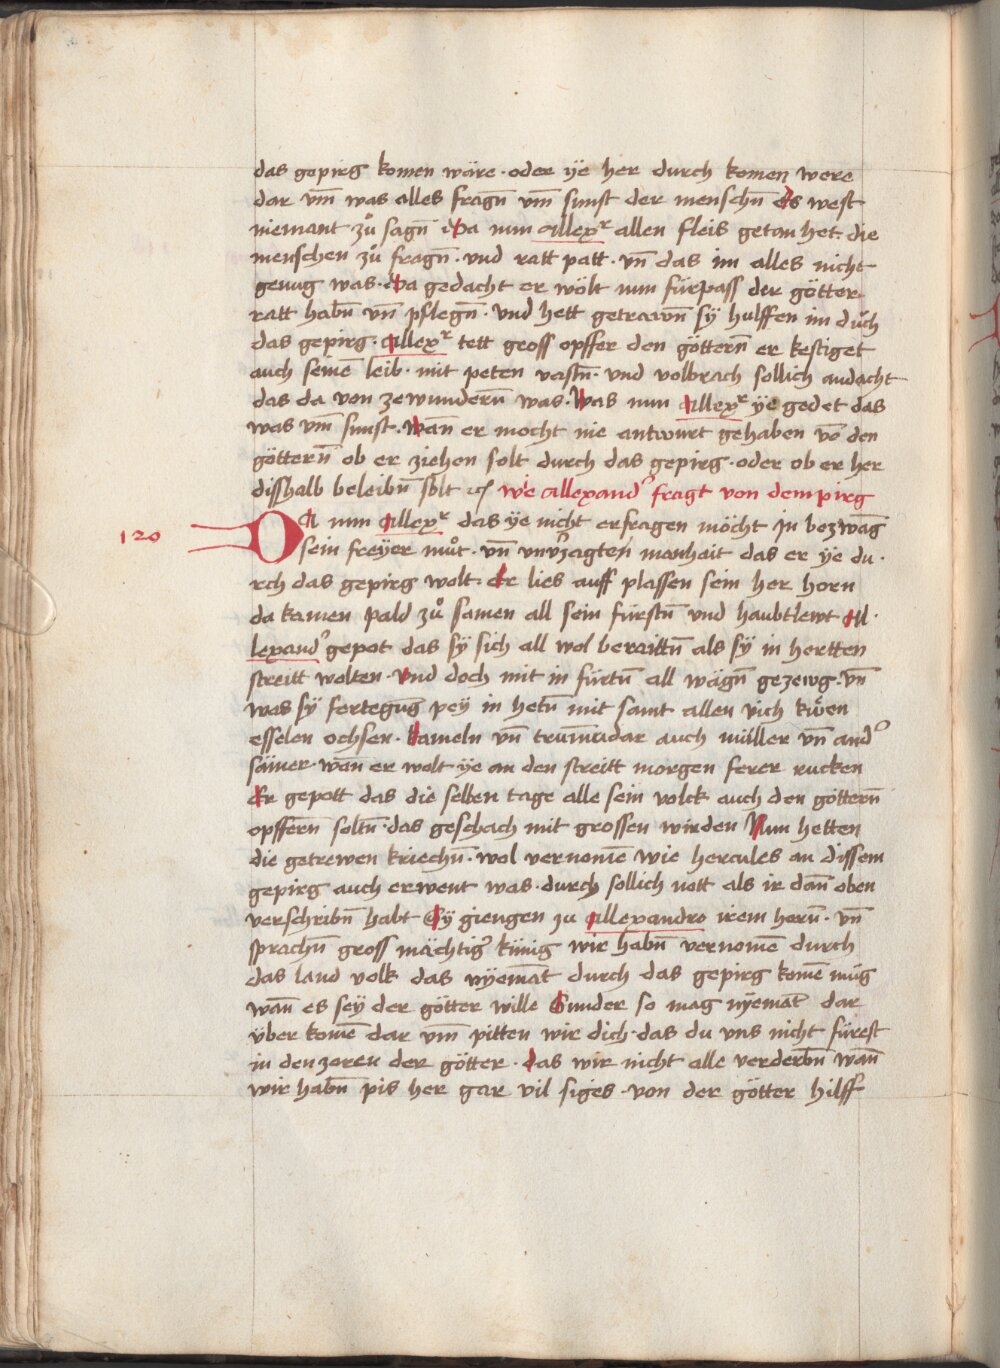 das gepirg komen wäre · oder ÿe her durch komen were
dar vm̄ was alles fragn̄ vm̄ sunst der menschn̄ Es west
niemant zů sagn̄ Da nun Allexr allen fleis getan het · die
menschen zů fragn̄ · vnd ratt patt · vn̄ das im alles nicht
genug was · Da gedacht er wölt nun fürpass der götter
ratt habn̄ vn̄ pflegn̄ · vnd hett getrawn̄ sÿ hulffen im durch
das gepirg · Allexr tett gross opffer den göttern̄ er kestiget
auch seinē leib · mit peten vastn̄ · vnd volbrach sollich andacht
das da von zewundern̄ was · Was nun Allexr ÿe gedet das
was vm̄ sunst · Wan̄ er mocht nie antwurt gehaben vō den
göttern̄ ob er ziehen solt durch das gepirg · oder ob er her
disshalb beleibn̄ solt wie Allexand' fragt von dem pirg
120
DA nun Allexr das ÿe nicht erfragen möcht In bezwāg
sein freÿer můt · vn̄ vnv'zagten manhait das er ÿe du ·
rch das gepirg wolt · Er lies auff plassen sein her horn
da kamen pald zů samen all sein fürstn̄ vnd haubtlewt Al ·
lexand' gepot das sÿ sich all wol berrittn̄ als sÿ in hertten
streitt wolten · Vnd doch mit in fürtn̄ all wägn̄ gezewg · vn̄
was sÿ fertegūg peÿ in hetn̄ mit samt allen vich küen
esselen ochsen · Kameln vn̄ trumudar auch müller vn̄ and'
sämer · wan̄ er wolt ÿe an den streitt morgen ferer rucken
Er gepott das die selben tage alle sein volck auch den göttern̄
opffern̄ soltn̄ · das geschach mit grossen wirden Nun hetten
die getrewen kriechn̄ · wol vernomē wie hercules an dissem
gepirg auch erwent was · durch sollich nott als ir dan̄ oben
verschribn̄ habt Sÿ giengen zu Allexandro irem hern̄ · vn̄
sprachn̄ gross mächtig' künig wir habn̄ vernomē durch
das land volk das nÿemāt durch das gepirg komē müg
wan̄ es seÿ der götter wille Sunder so mag nÿemāt dar
über komē dar vm̄ pitten wir dich · das du vns nicht fürest
in den zoren der götter · das wir nicht alle verderbn̄ wan̄
wir habn̄ pis her gar vil siges · von der götter hilff